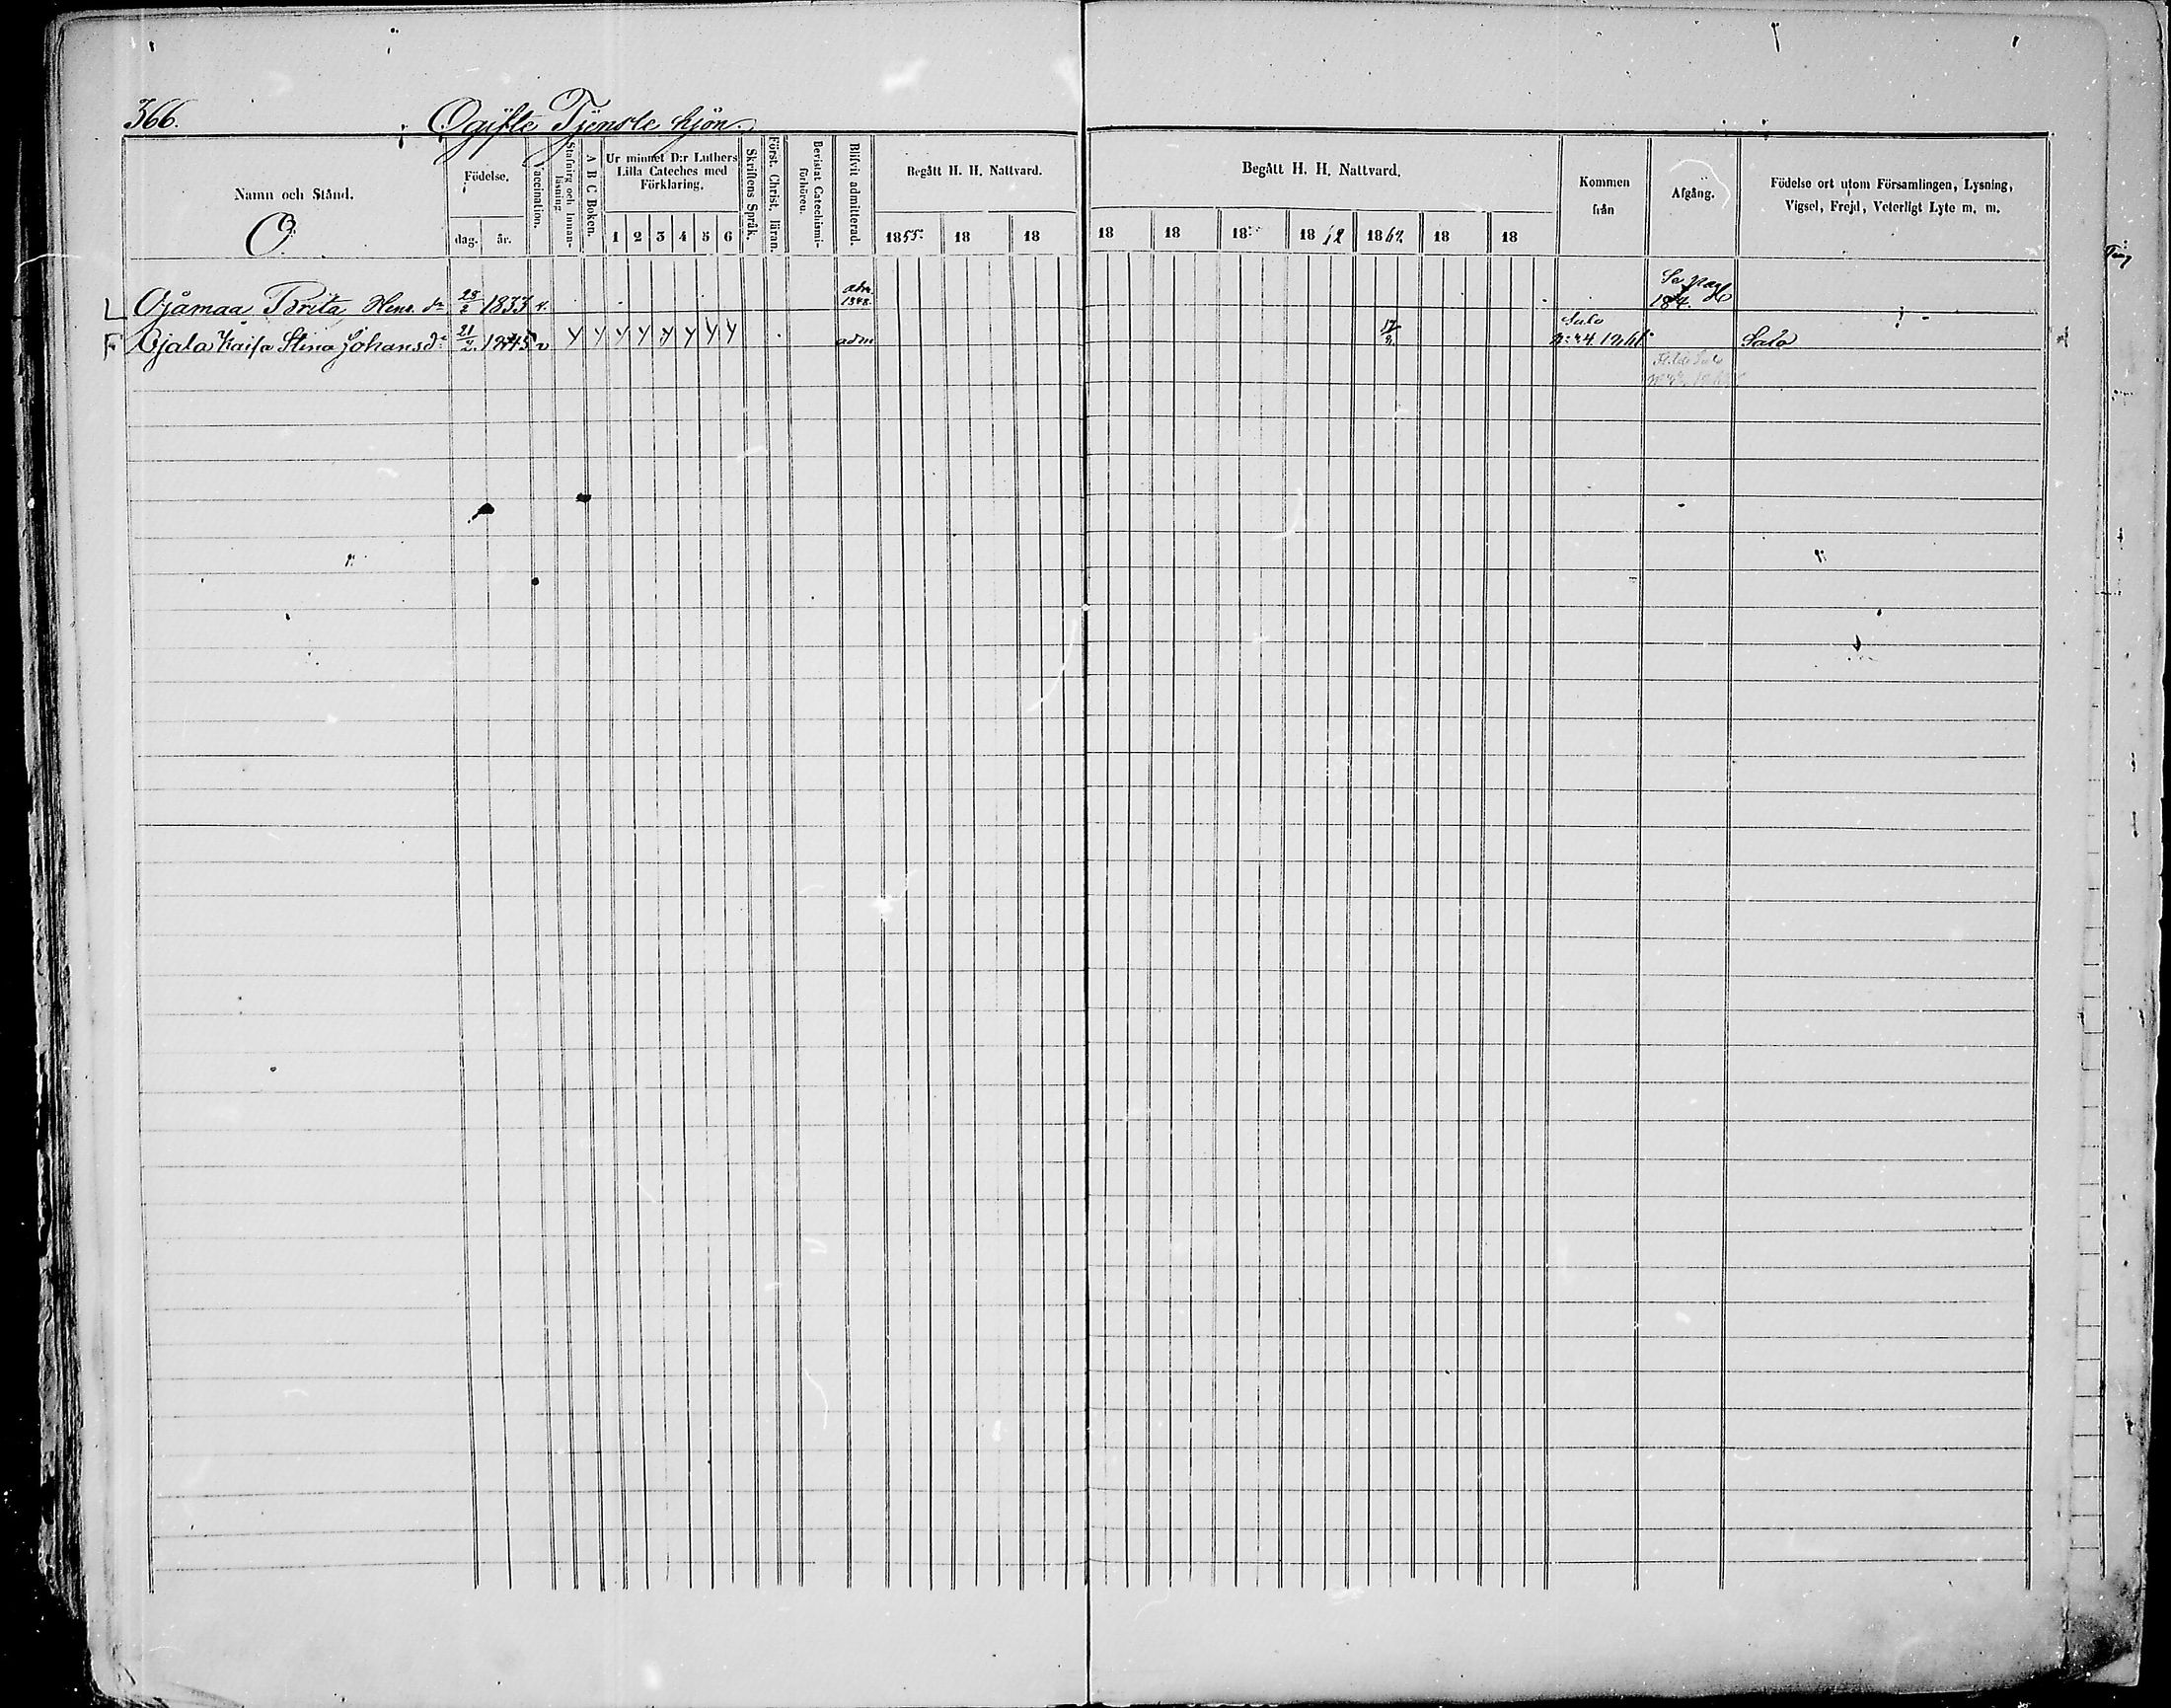 366. Ogifte Tjenste hjon.
Namn och Stånd.
O.
Födelse.
dag. år.
Vaccination.
Stafning och Innan-läsning
A B C Boken.
Ur minnet D:r Luthers
Lilla Cateches med
Förklaring.
1 2 3 4 5 6
Skriftens Språk.
Först. Christ. läran.
Bevistat Catechismi-förhören.
Blifvit admitterad.
Begått H. H. Nattvard.
1855. 18 18
Begått H. H. Nattvard.
18 18 18 18 62 18 18
Kommen
från
Afgång.
Födelse ort utom Församlingen, Lysning,
Vigsel, Frejd, Veterligt Lyte m. m.
L Ojåmaa Brita Henr. dr 23/2 1833 v. adm. 1848.
F Ojala Kaisa Stina Johansdr 21/2. 1845 v adm 17/3. Salo 1861. Salo